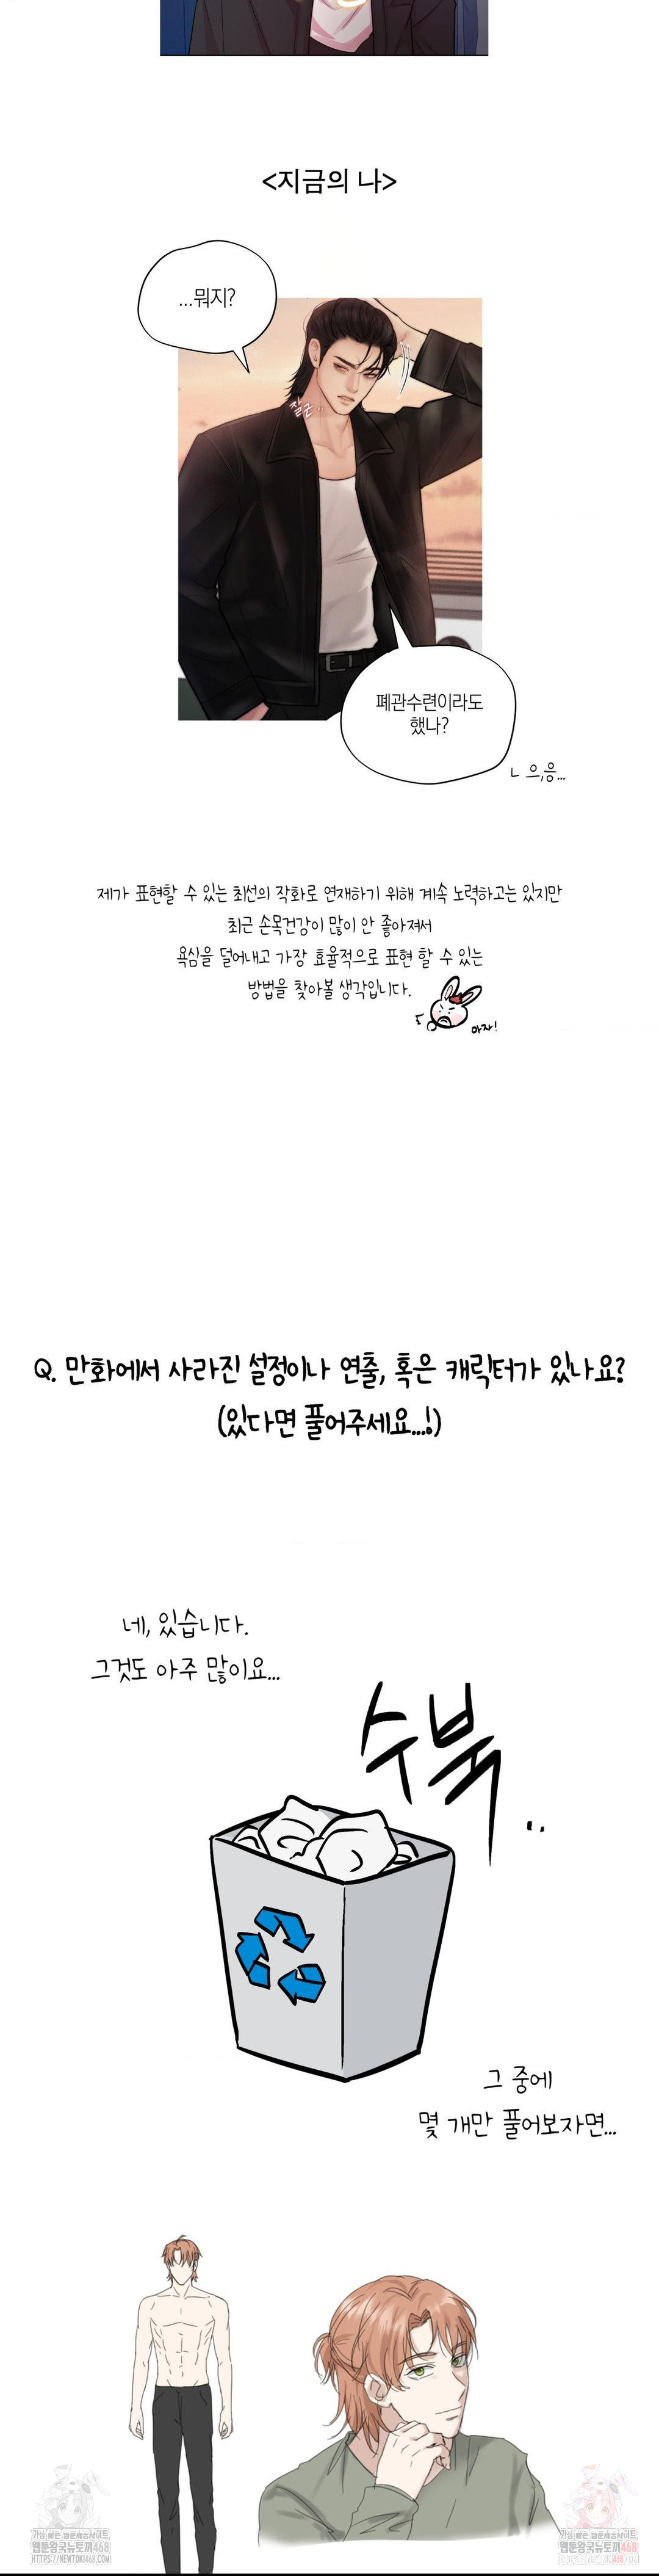 <지금의 나>
...뭐지?
질끈..
폐관수련이라도
했나?
ㄴ 으,응...
제가 표현할 수 있는 최선의 작화로 연재하기 위해 계속 노력하고는 있지만
최근 손목건강이 많이 안 좋아져서
욕심을 덜어내고 가장 효율적으로 표현 할 수 있는
방법을 찾아볼 생각입니다.
아자!
Q. 만화에서 사라진 설정이나 연출, 혹은 캐릭터가 있나요?
(있다면 풀어주세요...!)
네, 있습니다.
그것도 아주 많이요...
수북..
그 중에
몇 개만 풀어보자면...
가장 빠른 웹툰제공사이트,
웹툰왕국뉴토끼468
HTTPS://NEWTOKI468.COM
가장 빠른 웹툰제공사이트,
웹툰왕국뉴토끼468
HTTPS://NEWTOKI468.COM